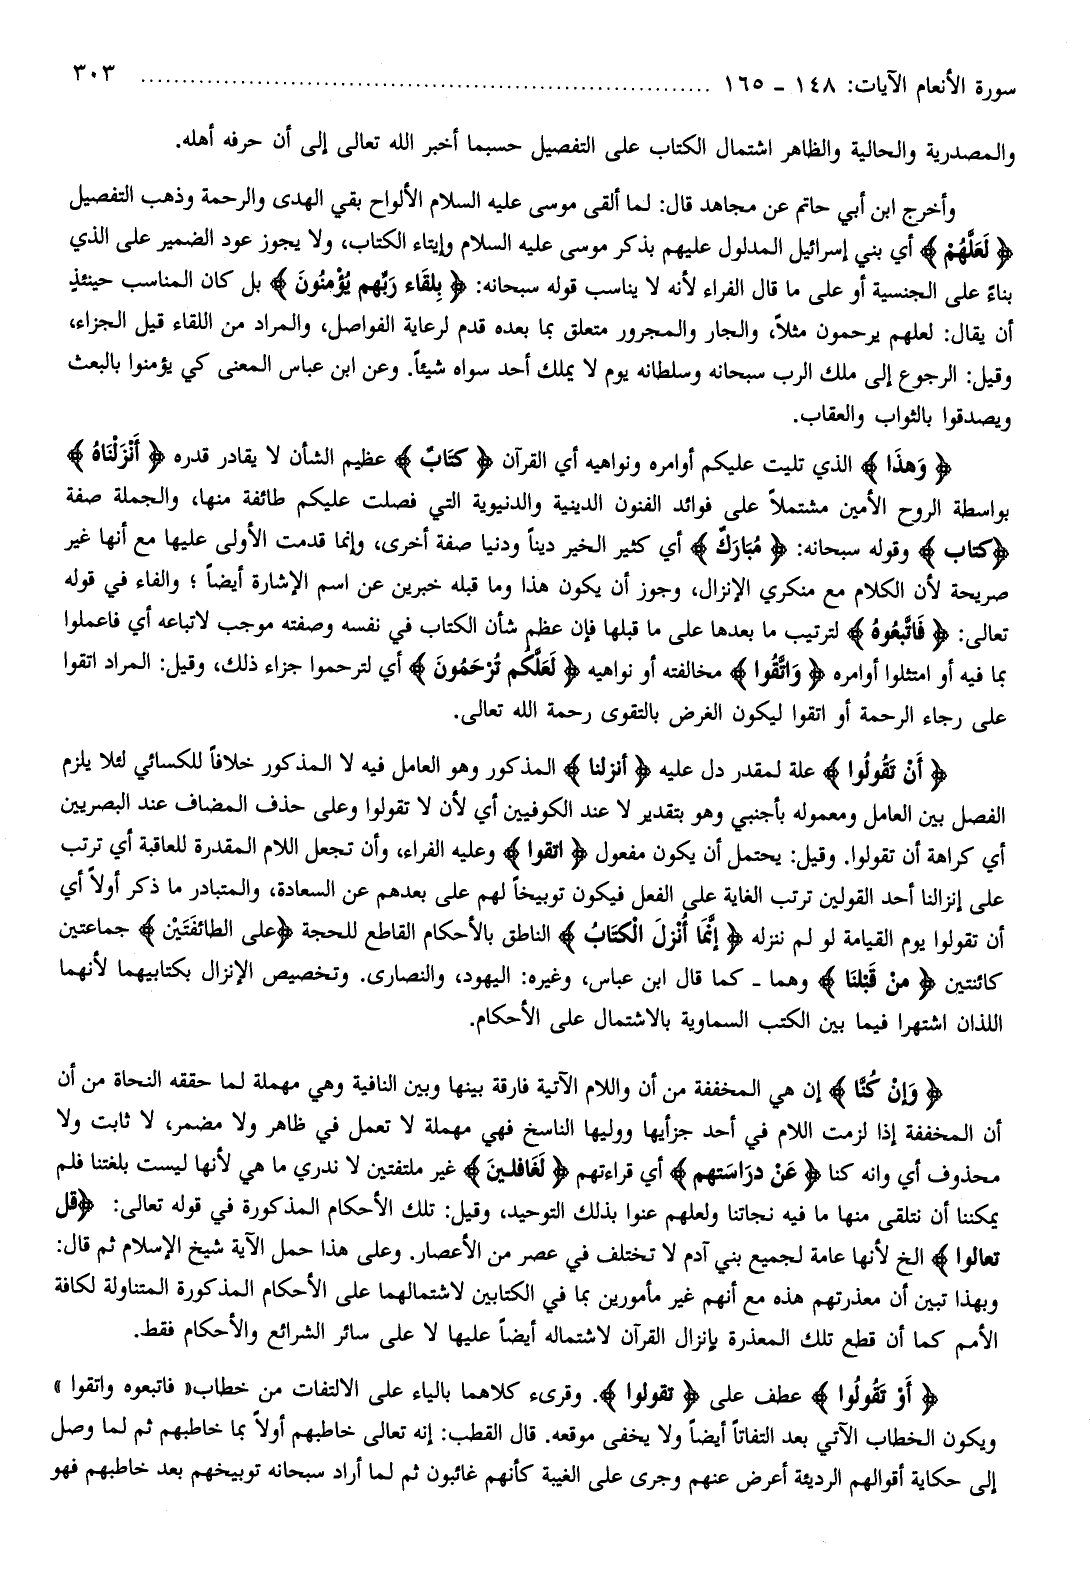 سورة الأنعام الآيات: ١٤٨ ـ ١٦٥ ........................................................................ ٣٠٣
والمصدرية والحالية والظاهر اشتمال الكتاب على التفصيل حسبما أخبر الله تعالى إلى أن حرفه أهله.
وأخرج ابن أبي حاتم عن مجاهد قال: لما ألقى موسى عليه السلام الألواح بقي الهدى والرحمة وذهب التفصيل
﴿ لَعَلَّهُمْ ﴾ أي بني إسرائيل المدلول عليهم بذكر موسى عليه السلام وإيتاء الكتاب، ولا يجوز عود الضمير على الذي
بناءً على الجنسية أو على ما قال الفراء لأنه لا يناسب قوله سبحانه: ﴿ بِلِقَاء رَبِّهِم يُؤْمِنُونَ ﴾ بل كان المناسب حينئذٍ
أن يقال: لعلهم يرحمون مثلاً، والجار والمجرور متعلق بما بعده قدم لرعاية الفواصل، والمراد من اللقاء قيل الجزاء،
وقيل: الرجوع إلى ملك الرب سبحانه وسلطانه يوم لا يملك أحد سواه شيئاً. وعن ابن عباس المعنى كي يؤمنوا بالبعث
ويصدقوا بالثواب والعقاب.
﴿ وَهذَا ﴾ الذي تليت عليكم أوامره ونواهيه أي القرآن ﴿ كِتَابٌ ﴾ عظيم الشأن لا يقادر قدره ﴿ أَنْزَلْنَاهُ ﴾
بواسطة الروح الأمين مشتملاً على فوائد الفنون الدينية والدنيوية التي فصلت عليكم طائفة منها، والجملة صفة
﴿كتاب ﴾ وقوله سبحانه: ﴿ مُبَارَكٌ ﴾ أي كثير الخير ديناً ودنيا صفة أخرى، وإنما قدمت الأولى عليها مع أنها غير
صريحة لأن الكلام مع منكري الإنزال، وجوز أن يكون هذا وما قبله خبرين عن اسم الإشارة أيضاً ؛ والفاء في قوله
تعالى: ﴿ فَاتَّبِعُوهُ ﴾ لترتيب ما بعدها على ما قبلها فإن عظم شأن الكتاب في نفسه وصفته موجب لاتباعه أي فاعملوا
بما فيه أو امتثلوا أوامره ﴿ وَاتَّقُوا ﴾ مخالفته أو نواهيه ﴿ لَعَلَّكُم تُرْحَمُونَ ﴾ أي لترحموا جزاء ذلك، وقيل: المراد اتقوا
على رجاء الرحمة أو اتقوا ليكون الغرض بالتقوى رحمة الله تعالى.
﴿ أَنْ تَقُولُوا ﴾ علة لمقدر دل عليه ﴿ أنزلنا ﴾ المذكور وهو العامل فيه لا المذكور خلافاً للكسائي لئلا يلزم
الفصل بين العامل ومعموله بأجنبي وهو بتقدير لا عند الكوفيين أي لأن لا تقولوا وعلى حذف المضاف عند البصريين
أي كراهة أن تقولوا. وقيل: يحتمل أن يكون مفعول ﴿ اتقوا ﴾ وعليه الفراء، وأن تجعل اللام المقدرة للعاقبة أي ترتب
على إنزالنا أحد القولين ترتب الغاية على الفعل فيكون توبيخاً لهم على بعدهم عن السعادة، والمتبادر ما ذكر أولاً أي
أن تقولوا يوم القيامة لو لم ننزله ﴿ إِنَّمَا أُنْزِلَ الْكتَابُ ﴾ الناطق بالأحكام القاطع للحجة ﴿على الطائفَتَيْن ﴾ جماعتين
كائنتين ﴿ منْ قَبْلنَا ﴾ وهما ـ كما قال ابن عباس، وغيره: اليهود، والنصارى. وتخصيص الإنزال بكتابيهما لأنهما
اللذان اشتهرا فيما بين الكتب السماوية بالاشتمال على الأحكام.
﴿ وَإنْ كُنَّا ﴾ إن هي المخففة من أن واللام الآتية فارقة بينها وبين النافية وهي مهملة لما حققه النحاة من أن
أن المخففة إذا لزمت اللام في أحد جزأيها ووليها الناسخ فهي مهملة لا تعمل في ظاهر ولا مضمر، لا ثابت ولا
محذوف أي وانه كنا ﴿ عَنْ درَاسَتهم ﴾ أي قراءتهم ﴿ لَغَافلينَ ﴾ غير ملتفتين لا ندري ما هي لأنها ليست بلغتنا فلم
يمكننا أن نتلقى منها ما فيه نجاتنا ولعلهم عنوا بذلك التوحيد، وقيل: تلك الأحكام المذكورة في قوله تعالى: ﴿قل
تعالوا ﴾ الخ لأنها عامة لجميع بني آدم لا تختلف في عصر من الأعصار. وعلى هذا حمل الآية شيخ الإسلام ثم قال:
وبهذا تبين أن معذرتهم هذه مع أنهم غير مأمورين بما في الكتابين لاشتمالهما على الأحكام المذكورة المتناولة لكافة
الأمم كما أن قطع تلك المعذرة بإنزال القرآن لاشتماله أيضاً عليها لا على سائر الشرائع والأحكام فقط.
﴿ أَوْ تَقُولُوا ﴾ عطف على ﴿ تقولوا ﴾. وقرىء كلاهما بالياء على الالتفات من خطاب« فاتبعوه واتقوا »
ويكون الخطاب الآتي بعد التفاتاً أيضاً ولا يخفى موقعه. قال القطب: إنه تعالى خاطبهم أولاً بما خاطبهم ثم لما وصل
إلى حكاية أقوالهم الرديئة أعرض عنهم وجرى على الغيبة كأنهم غائبون ثم لما أراد سبحانه توبيخهم بعد خاطبهم فهو